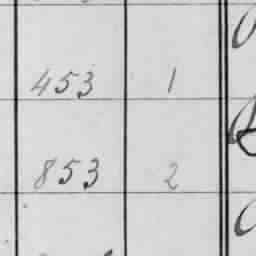 453 1
853 2